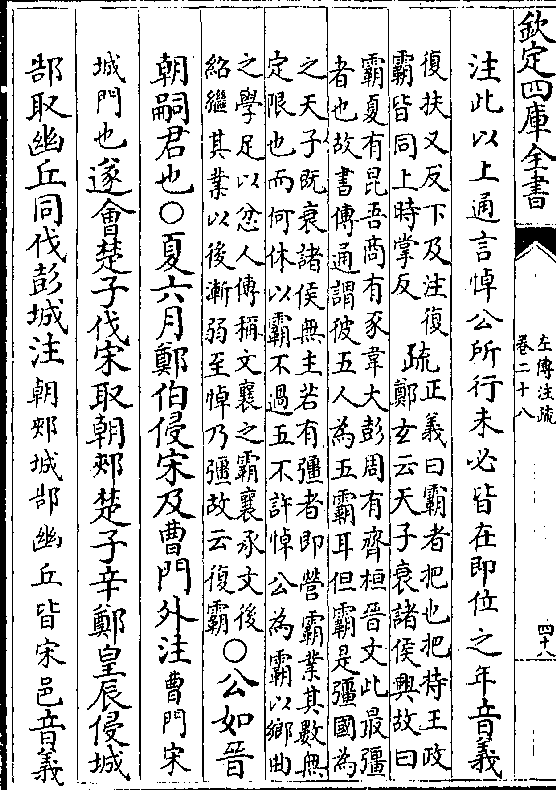 欽定四庫全書
左傳注疏
卷二十八
四十八
注此以上通言悼公所行未必皆在即位之年音義
復扶又反下及注復
霸皆同上時掌反
疏正義曰霸者把也把持王政
鄭玄云天子衰諸侯興故曰
霸夏有昆吾商有豕韋大彭周有齊桓晉文此最彊
者也故書傳通謂彼五人為五霸耳但霸是彊國為
之天子既衰諸侯無主若有彊者即營霸業其數無
定限也而何休以霸不過五不許悼公為霸以鄉曲
之學足以忿人傳稱文襄之霸襄承文後
紹繼其業以後漸弱至悼乃彊故云復霸
○公如晉
朝嗣君也○夏六月鄭伯侵宋及曹門外注曹門宋
城門也遂會楚子伐宋取朝郟楚子辛鄭皇辰侵城
郜取幽丘同伐彭城注朝郟城郜幽丘皆宋邑音義